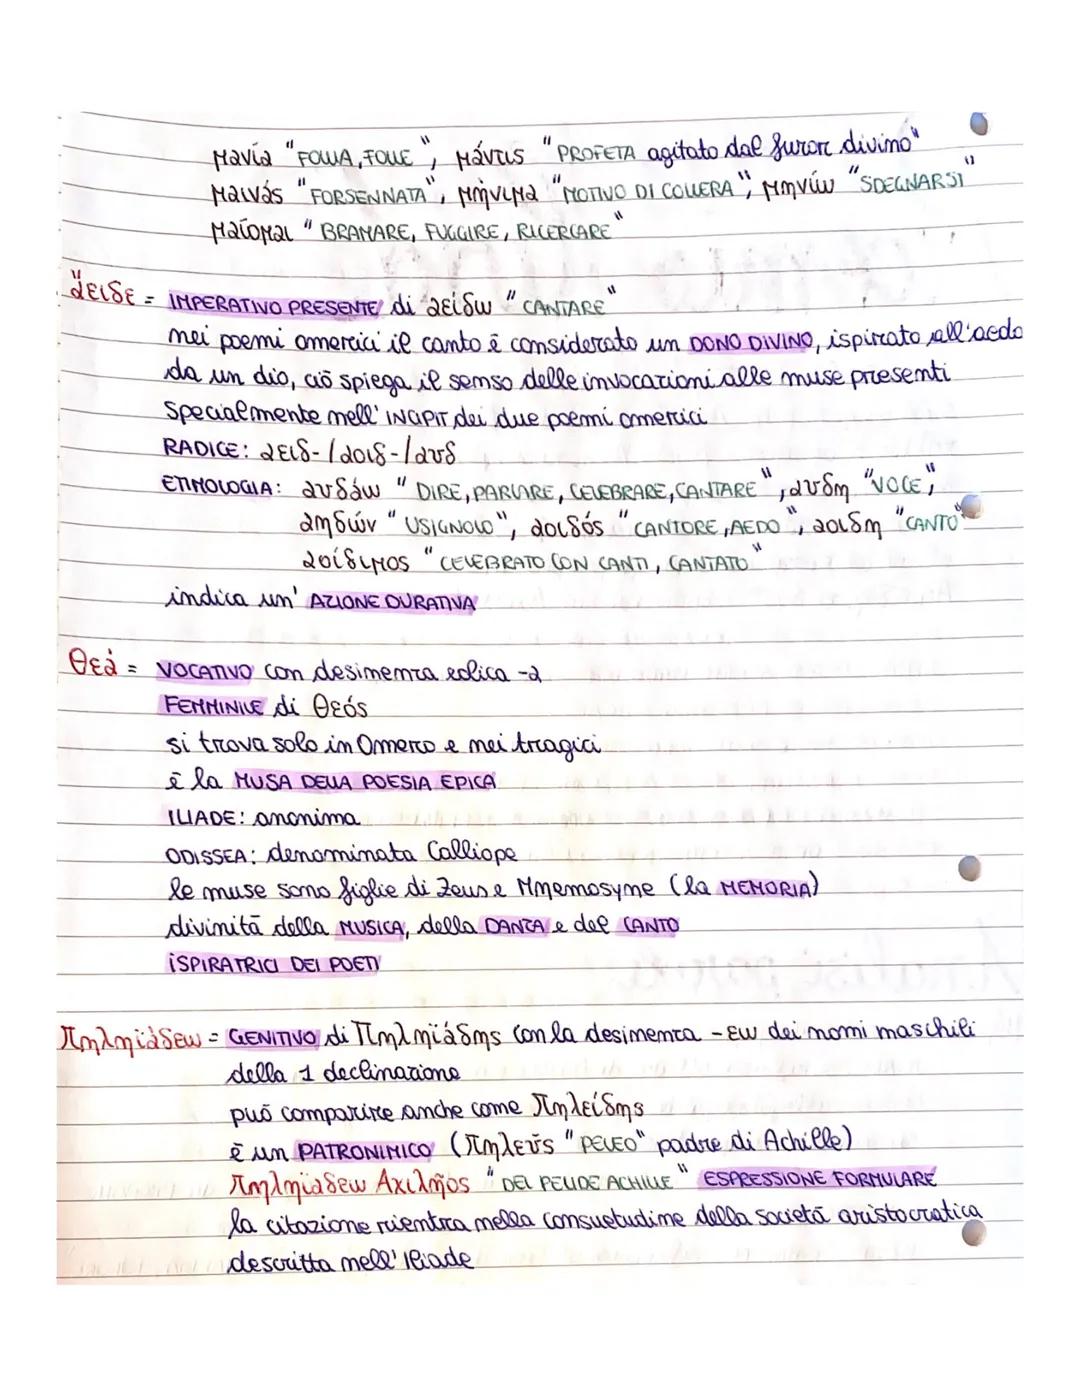 μανία "FOLLIA, FOLLE", μάντις "PROFETA agitato dal furor divino"
μαινάς "FORSENNATA", μήνιμα "MOTIVO DI COLLERA", μηνίω "SDEGNARSI"
μαίομαι "BRAMARE, FUGGIRE, RICERCARE"
ἄειδε = IMPERATIVO PRESENTE di ἀείδω "CANTARE"
nei poemi omerici il canto è considerato un DONO DIVINO, ispirato all'aedo
da un dio, ciò spiega il senso delle invocazioni alle muse presenti
specialmente nell' INCIPIT dei due poemi omerici
RADICE: αειδ-/αοιδ-/αυδ
ETIMOLOGIA: αυδάω "DIRE, PARLARE, CELEBRARE, CANTARE", αυδη "VOCE",
αηδών "USIGNOLO", αοιδός "CANTORE, AEDO", αοιδη "CANTO"
αοίδιμος "CELEBRATO CON CANTI, CANTATO"
indica un' AZIONE DURATIVA
Θεὰ = VOCATIVO con desinenza eolica -α
FEMMINILE di Θεός
si trova solo in Omero e nei tragici
è la MUSA DELLA POESIA EPICA
ILIADE: anonima
ODISSEA: denominata Calliope
le muse sono figlie di Zeus e Mnemosyme (la MEMORIA)
divinità della MUSICA, della DANZA e del CANTO
ISPIRATRICI DEI POETI
Πηληϊάδεω = GENITIVO di Πηληϊάδης con la desinenza -εω dei nomi maschili
della 1 declinazione
può comparire anche come Πηλείδης
è un PATRONIMICO (Πηλεύς "PELEO" padre di Achille)
Πηληϊαδεω Αχιλῆος "DEL PELIDE ACHILLE" ESPRESSIONE FORMULARE
la citazione rientra nella consuetudine della società aristocratica
descritta nell' Iliade